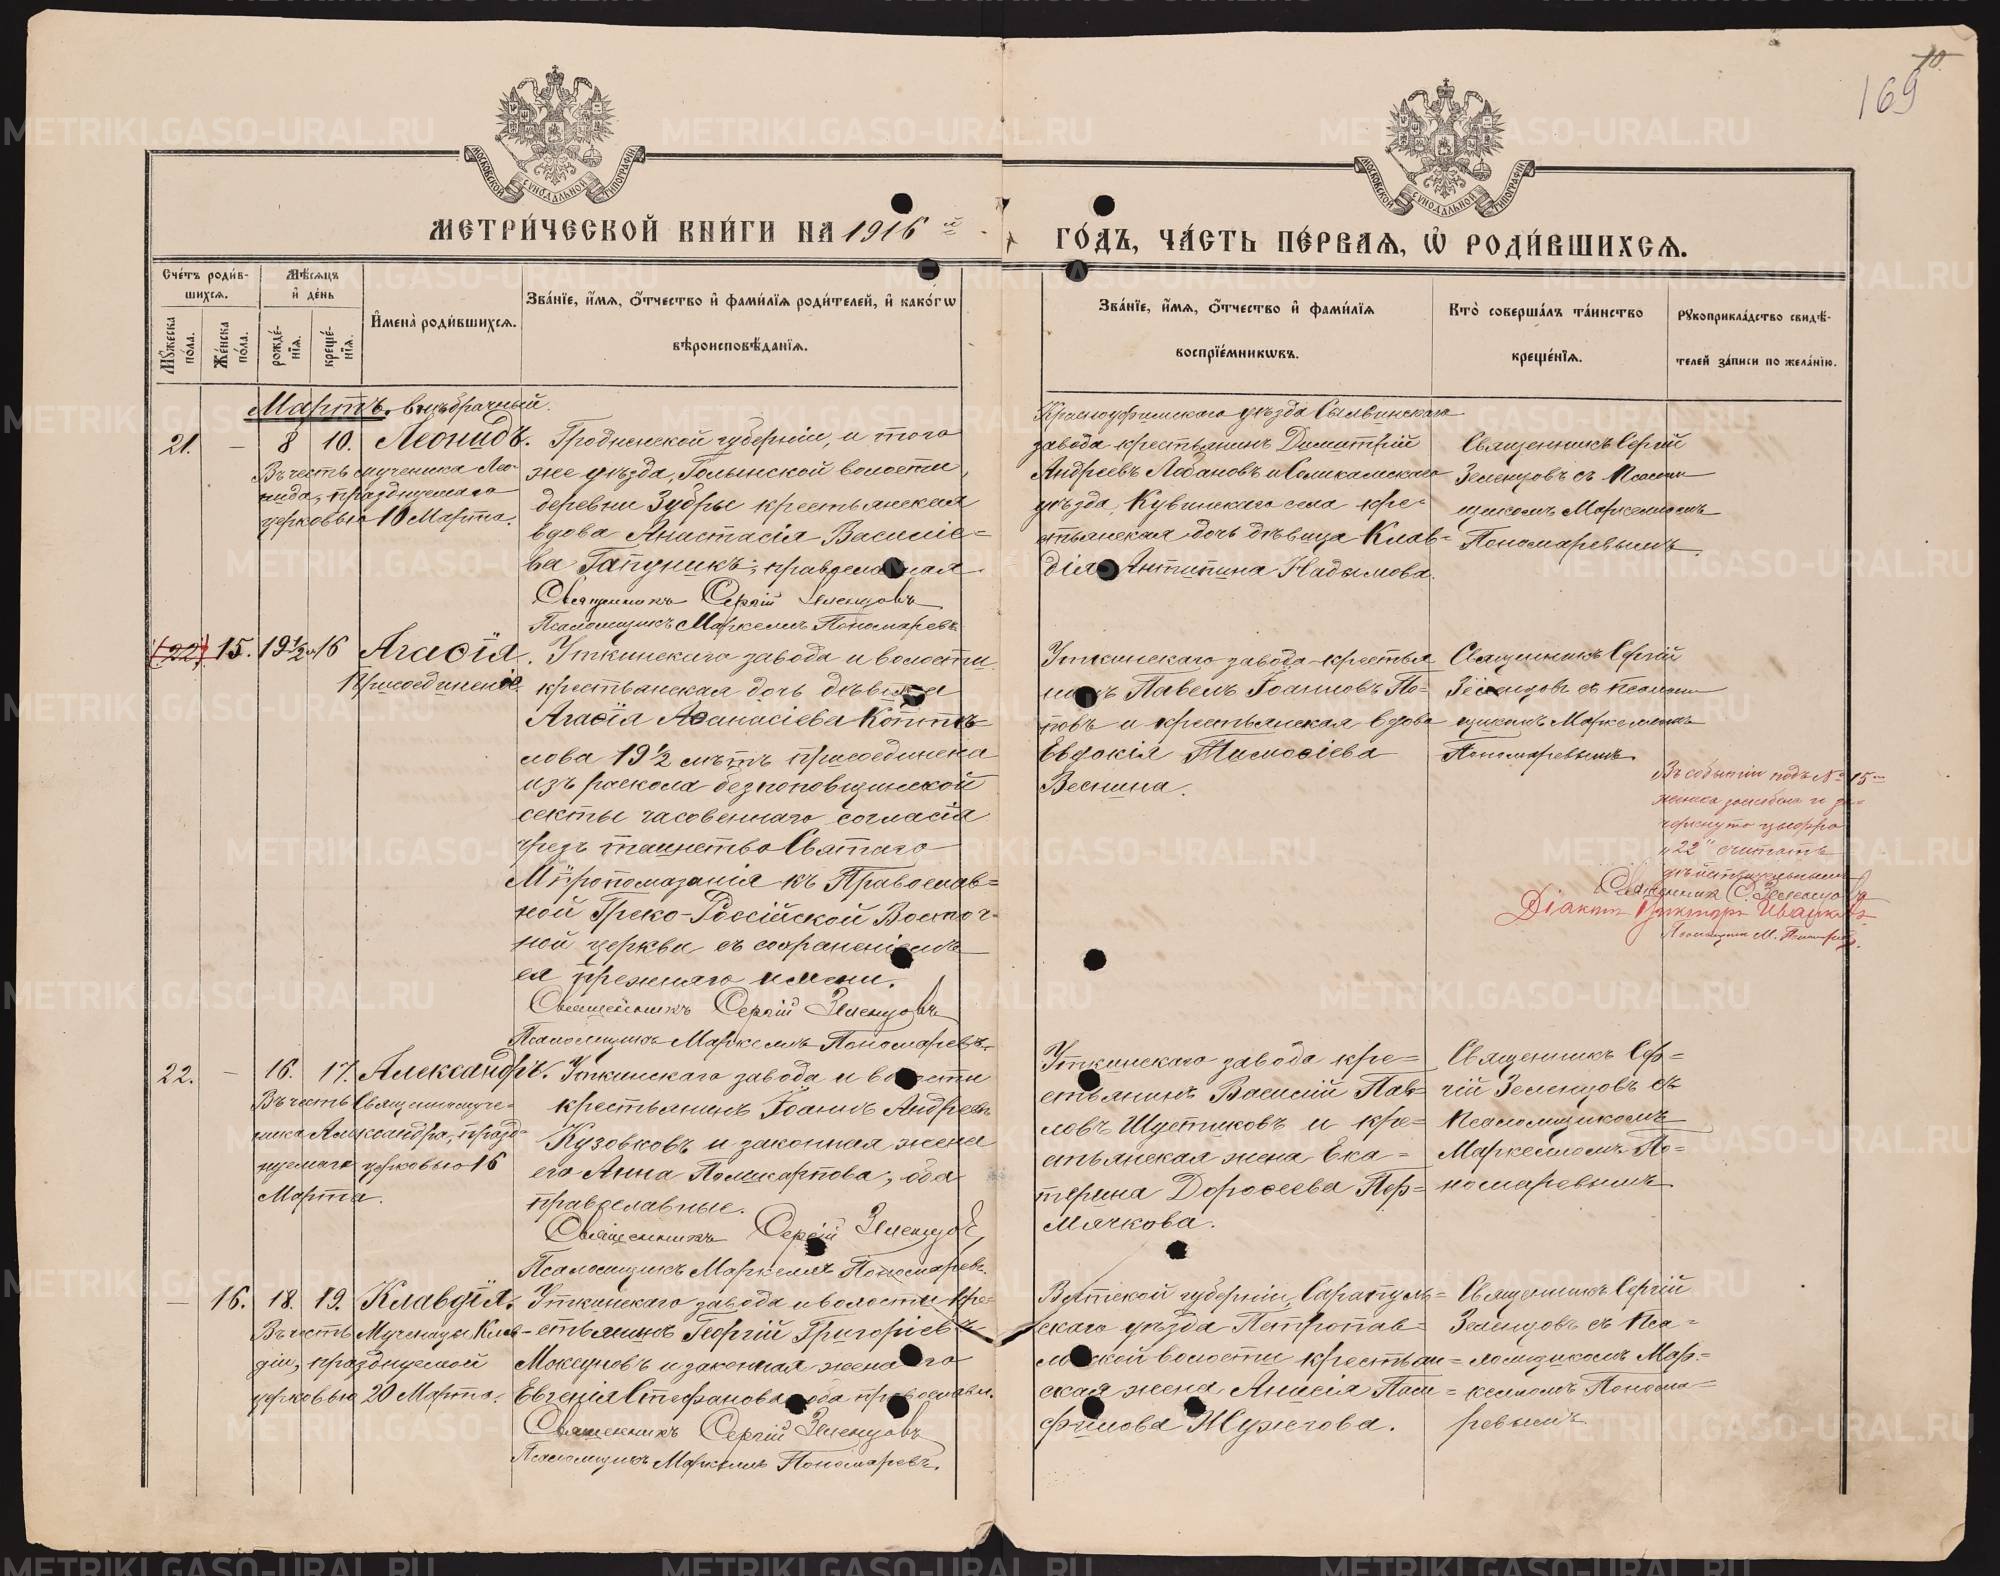 169
10.
МОСКОВСКОЙ СѴНОДАЛЬНОЙ ТИПОГРАФІИ
МОСКОВСКОЙ СѴНОДАЛЬНОЙ ТИПОГРАФІИ
МЕТРИ́ЧЕСКОЙ КНИ́ГИ НА 1916 й
ГО́ДЪ, ЧА́СТЬ ПЕ́РВАѦ, Ѽ РОДИ́ВШИХСѦ.
Сче́тъ роди́в-
шихсѧ.
Мѣ́сѧцъ
и҆ де́нь
Мꙋ́жеска по́ла.
Же́нска по́ла.
рожде́-
нїѧ.
креще́-
нїѧ.
И҆мена̀ роди́вшихсѧ.
Зва́нїе, и҆́мѧ, ѻ҆́тчество и҆ фами́лїѧ роди́телей, и҆ како́гѡ
вѣроисповѣ́данїѧ.
Зва́нїе, и҆́мѧ, ѻ҆́тчество и҆ фами́лїѧ
воспрїе́мникѡвъ.
Кто̀ соверша́лъ та́инство
креще́нїѧ.
Рꙋкоприкла́дство свидѣ́-
телей за́писи по жела́нїю.
Мартъ. внѣбрачный.
21. - 8 10. Леонидъ.
Въ честь мученика Лео-
нида, празднуемаго
церковью 10 Марта.
Гродненской губерніи, и того
же уѣзда, Голынской волости,
деревни Зубры крестьянская
вдова Анастасія Василіе-
ва Гапуникъ; православная.
Священникъ Сергій Зеленцовъ
Псаломщикъ Маркеллъ Пономаревъ
Красноуфимскаго уѣзда Сылвинскаго
завода крестьянинъ Димитрій
Андреевъ Лобановъ и Соликамскаго
уѣзда, Кувинскаго села кре-
стьянская дочь дѣвица Клав-
дія Антипина Надымова.
Священникъ Сергій
Зеленцовъ съ Псалом
щикомъ Маркелломъ
Пономаревымъ.
(22) 15. 19½ 16 Агаѳія.
Присоединеніе
Уткинскаго завода и волости
крестьянская дочь дѣвица
Агаѳія Аѳанасіева Котте-
лова 19½ лѣтъ присоединена
изъ раскола безпоповщинской
секты часовеннаго согласія
чрезъ таинство Святаго
Мѵропомазанія къ Православ-
ной Греко-Россійской Восточ-
ной церкви съ сохраненіемъ
ея прежняго имени.
Священникъ Сергій Зеленцовъ
Псаломщикъ Маркеллъ Пономаревъ.
Уткинскаго завода крестья
нинъ Павелъ Іоанновъ По-
повъ и крестьянская вдова
Евдокія Тимоѳіева
Веснина.
Священникъ Сергій
Зеленцовъ съ псалом
щикомъ Маркелломъ
Пономаревымъ.
Въ событіи подъ № 15
женска и за-
черкнуто цыфра
"22" считать
дѣйствительнымъ
Священникъ С. Зеленцовъ
Діаконъ Викторъ Ивацковъ
Псаломщикъ М. Пономаревъ.
22. - 16. 17. Александръ.
Въ честь Священномуче-
ника Александра, празд-
нуемаго церковью 16
Марта.
Уткинскаго завода и волости
крестьянинъ Іоаннъ Андреевъ
Кузовковъ и законная жена
его Анна Поликарпова, оба
православные.
Священникъ Сергій Зеленцовъ
Псаломщикъ Маркеллъ Пономаревъ.
Уткинскаго завода кре-
стьянинъ Василій Пав-
ловъ Шустиковъ и кре-
стьянская жена Ека-
терина Дороѳеева Пер-
мячкова.
Священникъ Сер-
гій Зеленцовъ съ
Псаломщикомъ
Маркелломъ По-
номаревымъ
- 16. 18. 19. Клавдія.
Въ честь Мученицы Клав-
діи, празднуемой
церковью 20 Марта.
Уткинскаго завода и волости кре-
стьянинъ Георгій Григоріевъ
Мокеуновъ и законная жена его
Евгенія Стефанова оба православн.
Священникъ Сергій Зеленцовъ
Псаломщикъ Маркеллъ Пономаревъ.
Вятской губерніи, Сарапуль-
скаго уѣзда Петропав-
ловской волости крестьян-
ская жена Анисія Пам-
филова Жужгова.
Священникъ Сергій
Зеленцовъ съ Пса-
ломщикомъ Мар-
келломъ Понома-
ревымъ
METRIKI.GASO-URAL.RU